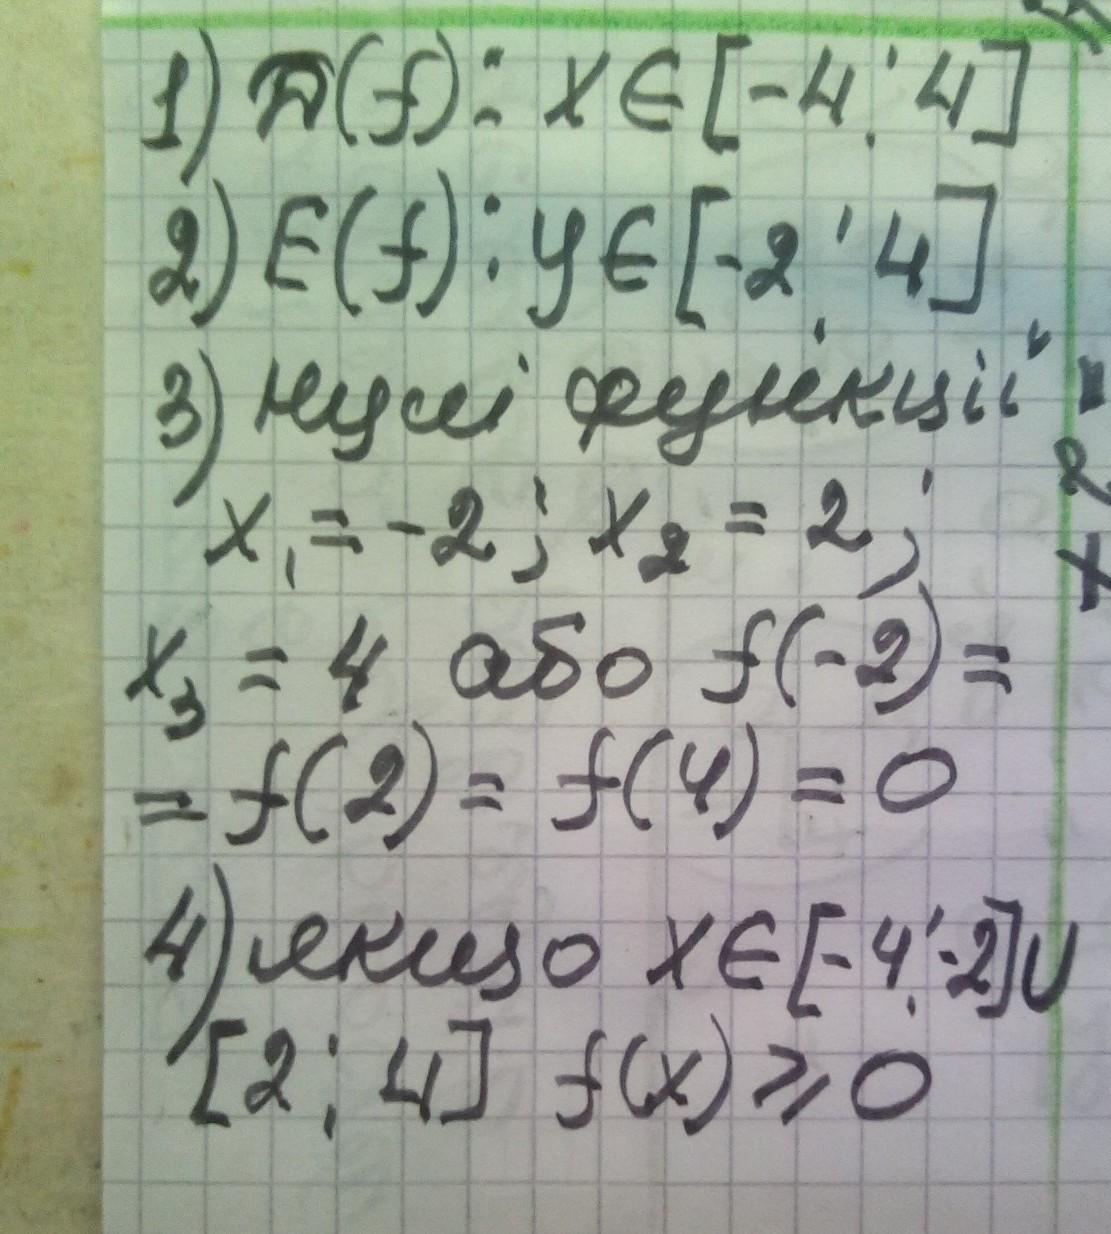 1) D(f): x ∈ [-4; 4]
2) E(f): y ∈ [-2; 4]
3) нулі функції
x₁ = -2; x₂ = 2;
x₃ = 4 або f(-2) =
= f(2) = f(4) = 0
4) якщо x ∈ [-4; -2] ∪
[2; 4] f(x) ⩾ 0